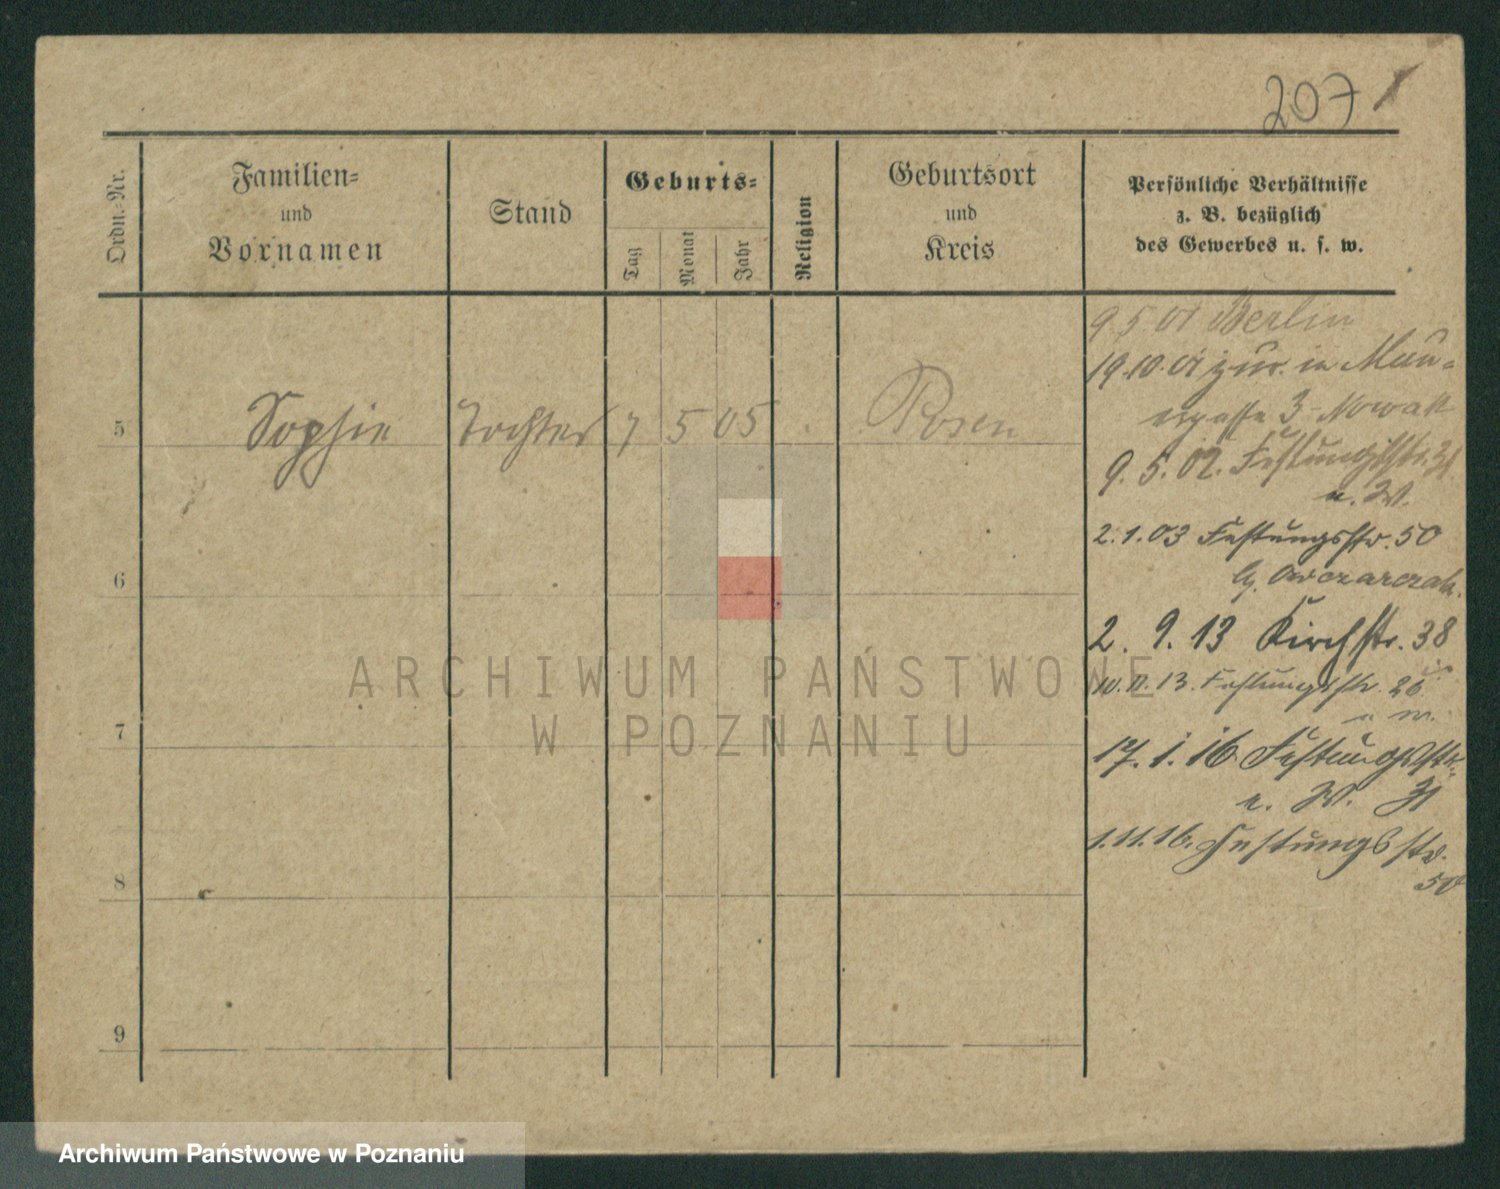 207 1
Ordn.-Nr.
Familien-
und
Vornamen
Stand
Geburts-
Tag
Monat
Jahr
Religion
Geburtsort
und
Kreis
Persönliche Verhältnisse
z. B. bezüglich
des Gewerbes u. s. w.
5 Sophie Tochter 7 5 05 Posen
6
7
8
9
9 5 01 Berlin
19.10.01 zur. in Mau-
ergasse 3 Nowak
9. 5. 02. Festungsstr. 31
u. W.
2. 1. 03 Festungsstr. 50
b. Owczarczak.
2. 9. 13 Kirchstr. 38
13. Festungsstr. 26
u W.
17. 1. 16. Festungsstr.
u. W. 31
1.11.16. Festungsstr.
50
ARCHIWUM PAŃSTWOWE
W POZNANIU
Archiwum Państwowe w Poznaniu